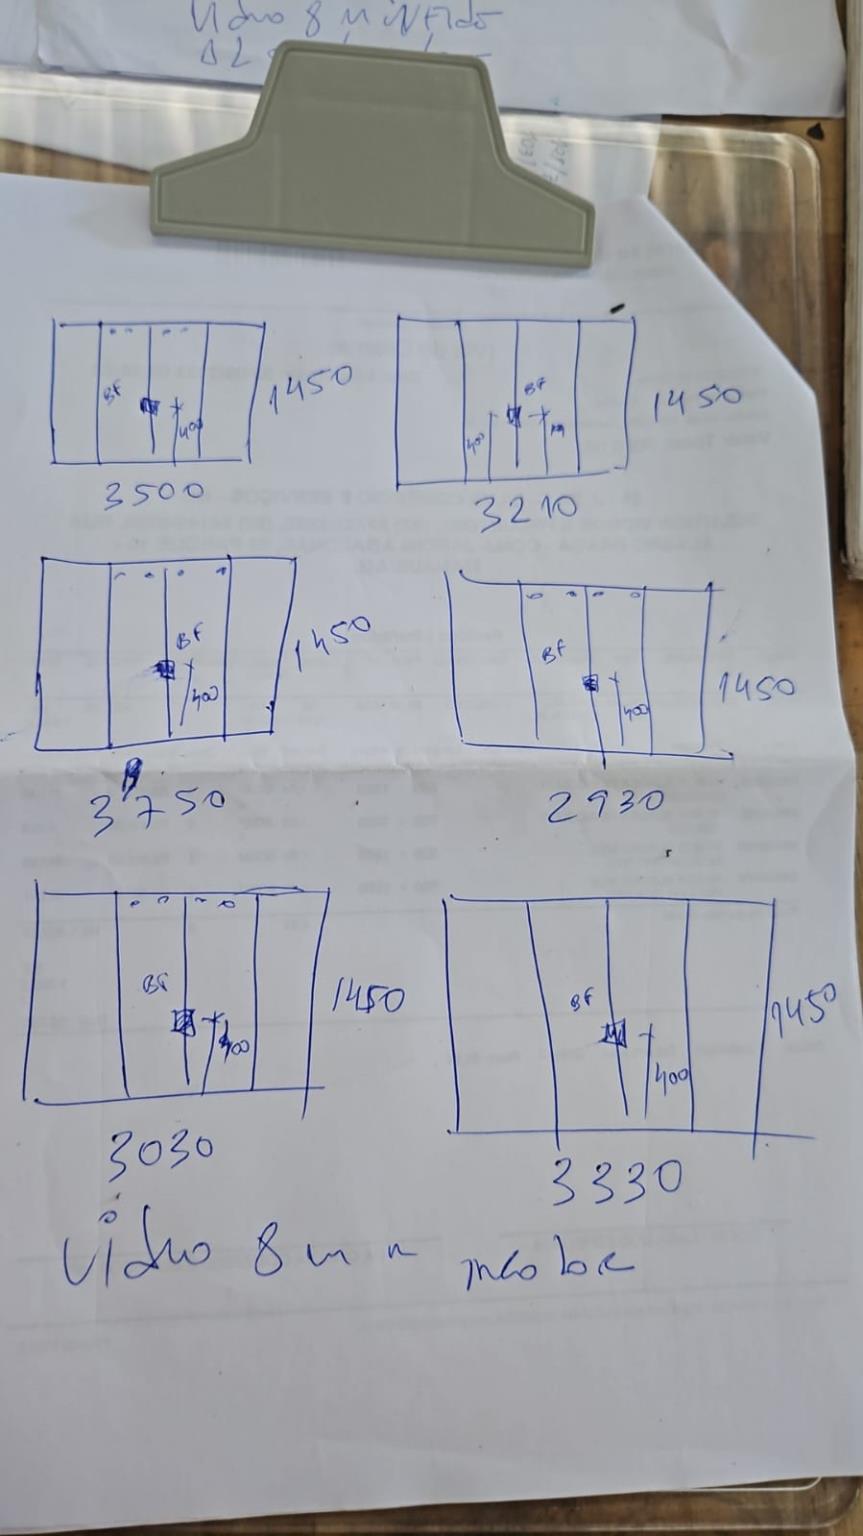 Vidro 8 m
BF
400
1450
3500
BF
400
1450
3210
BF
400
1450
3750
BF
400
1450
2930
BF
400
1450
3030
BF
400
1450
3330
Vidro 8mm incolor